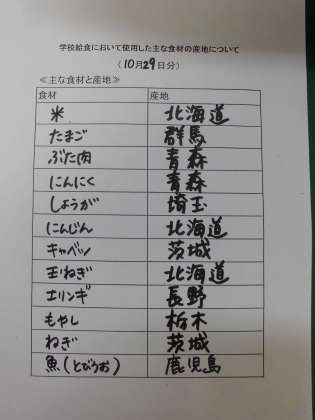 学校給食において使用した主な食材の産地について
(10月29日分)
≪主な食材と産地≫
食材 産地
米 北海道
たまご 群馬
ぶた肉 青森
にんにく 青森
しょうが 埼玉
にんじん 北海道
キャベツ 茨城
玉ねぎ 北海道
エリンギ 長野
もやし 栃木
ねぎ 茨城
魚(とびうお) 鹿児島